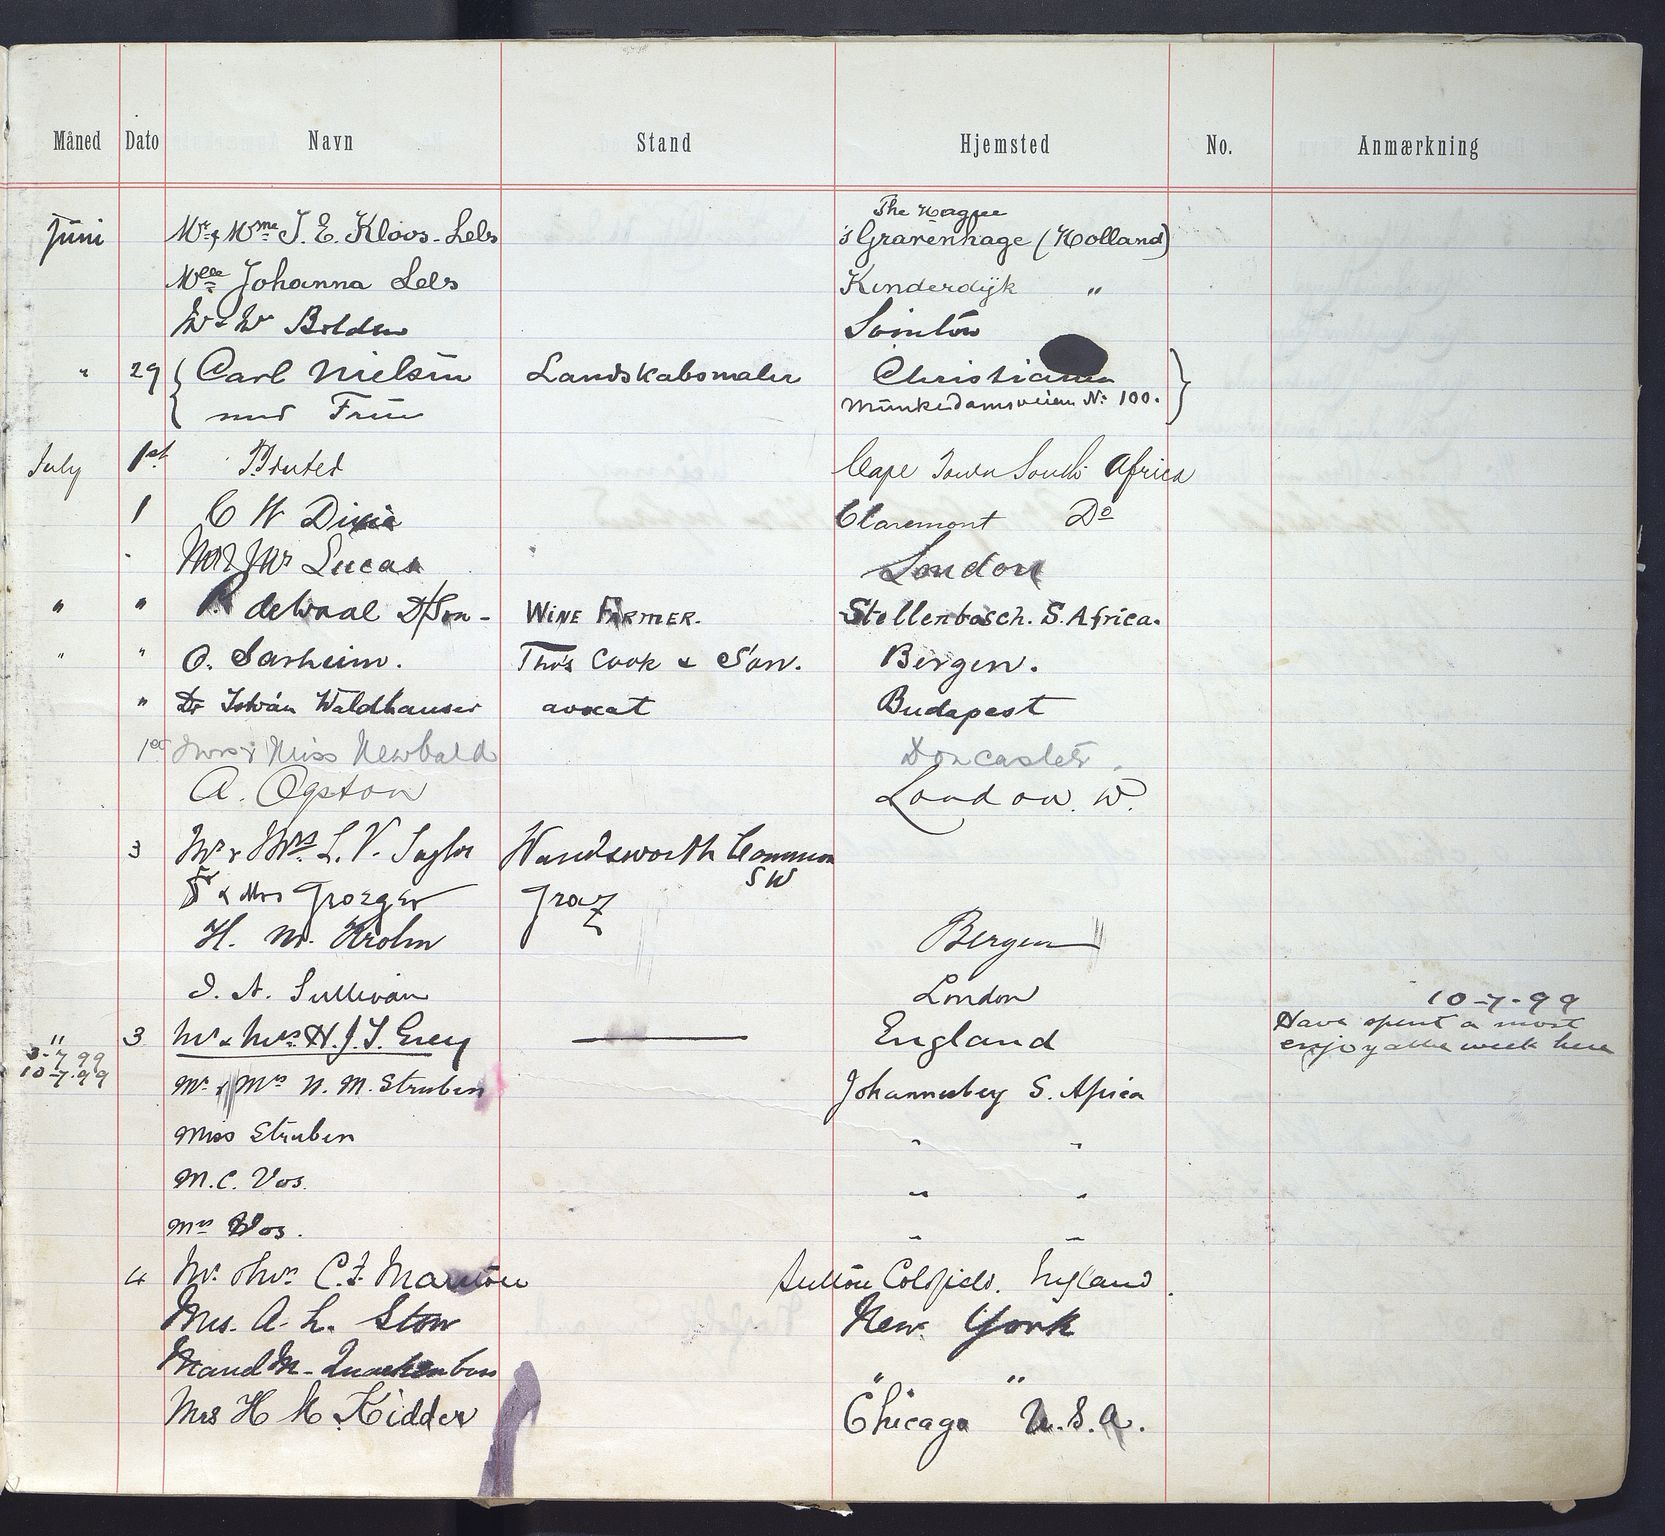 Måned Dato Navn Stand Hjemsted No. Anmærkning
The Hague
Juni Mr & Mme J. E. Kloos-Lels 's Gravenhage (Holland)
Mlle Johanna Lels Kinderdijk "
Bolden
" 29 { Carl Nielsen Landskabsmaler Christiania }
med Frue Munkedamsveien No 100.
July 1st Cape Town South Africa
1 C W Claremont Do
Lucas London
" " deWaal D/Son - WINE FARMER. Stellenbosch. S. Africa.
" " O. Sarheim. Thos Cook & Son. Bergen.
" Dr István Waldhauser avocat Budapest
1st Mrs & Miss Newbald Doncaster.
A. Ogston London. W.
3 Mr & Mrs. L. V. Taylor Wandsworth Common
SW
& Mrs Groeger Graz
H. M. Krohn Bergen
J. A. Sullivan London
10-7-99
" 3 Mr & Mrs. H. J. T. Grey England Have spent a most
3-7 99 enjoyable week here
10-7-99
Mr & Mrs H. M. Struben Johannesberg S. Africa
Miss Struben " "
M. C. Vos. " "
Mrs Vos. " "
4 Mr. & Mrs C. F. Marston Sutton Coldfield. England.
Mrs. A. L. Stow New York
Maud M. Quackenbos " "
Mrs H M Kidder Chicago U. S. A.